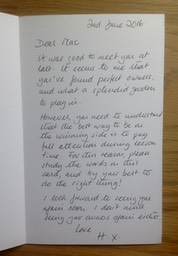 2nd June 2016
Dear Mac
It was good to meet you at
last. It seems to me that
you've found perfect owners,
and what a splendid garden
to play in.
However, you need to understand
that the best way to be on
the winning side is to pay
full attention during lesson
time. For this reason, please
study the words in this
card, and try your best to
do the right thing!
I look forward to seeing you
again soon. I don't mind
seeing your owners again either.
Love
H x.